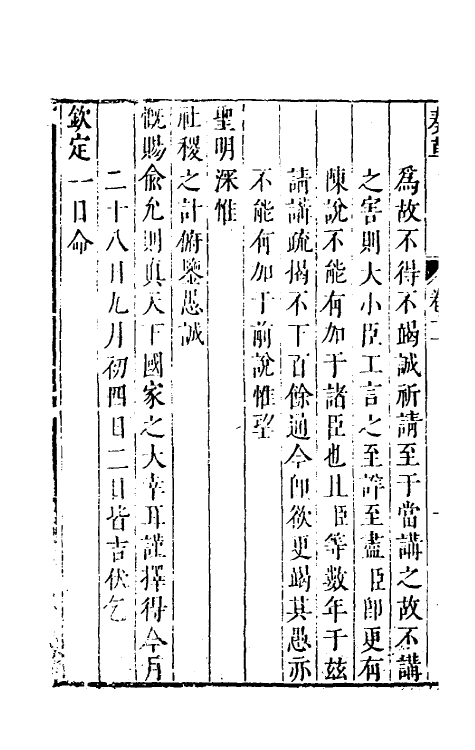 奏草
卷二
爲故不得不竭誠祈請至于當講之故不講
之害則大小臣工言之至詳至盡臣卽更有
陳說不能有加于諸臣也且臣等數年于玆
請講疏揭不下百餘通今卽欲更竭其愚亦
不能有加于前說惟望
聖明深惟
社稷之計俯鑒愚誠
慨賜俞允則眞天下國家之大幸耳謹擇得今月
二十八日九月初四日二日皆吉伏乞
欽定一日命